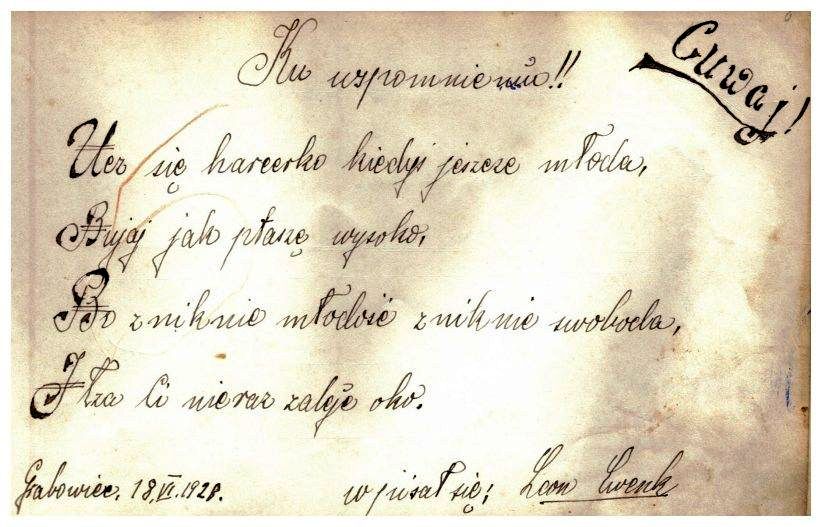 Ku wspomnieniu!!
Czuwaj!
Ucz się harcerko kiedyś jeszcze młoda,
Bujaj jak ptaszę wysoko,
Bo zniknie młodość zniknie swoboda,
I łza Ci nieraz zaleje oko.
Grabowiec, 18.VI.1928.
wpisał się; Leon